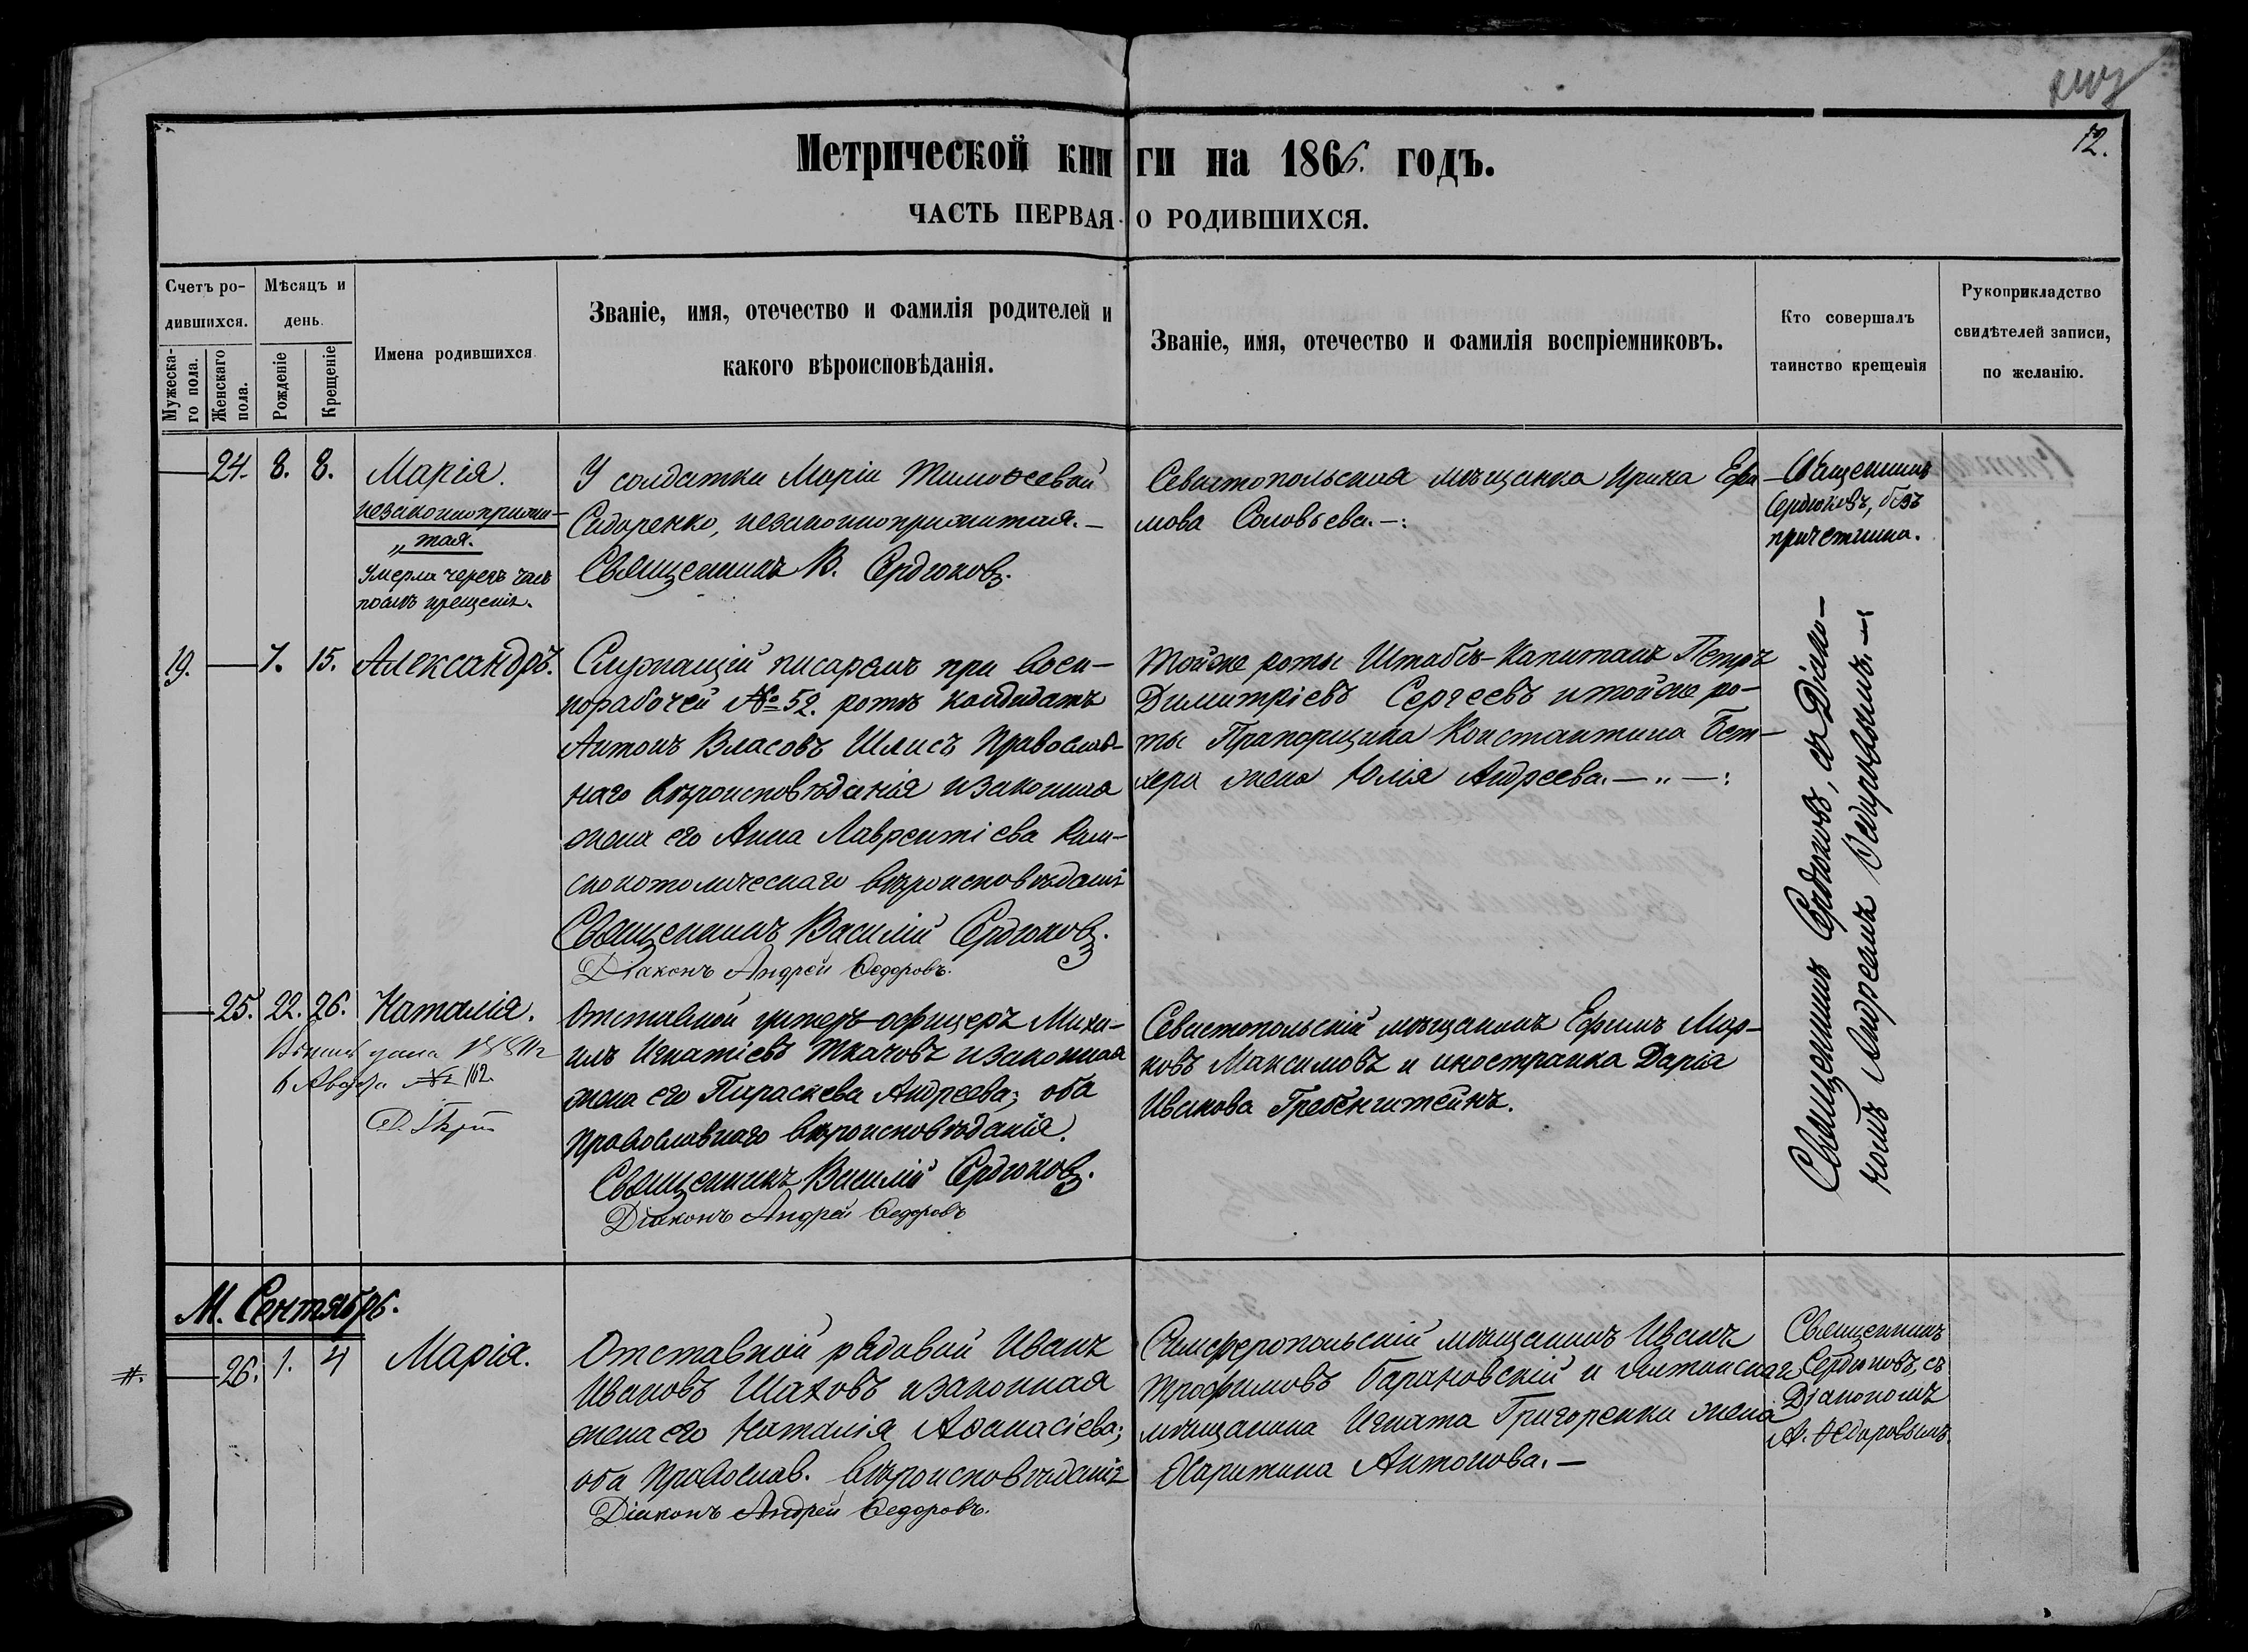 12.
Метрической книги на 1866. годъ.
ЧАСТЬ ПЕРВАЯ. О РОДИВШИХСЯ.
Счетъ ро-
дившихся.
Мужеска-
го пола.
Женскаго
пола.
Мѣсяцъ и
день.
Рожденіе
Крещеніе
Имена родившихся
Званіе, имя, отечество и фамилія родителей и
какого вѣроисповѣданія.
Званіе, имя, отечество и фамилія воспріемниковъ.
Кто совершалъ
таинство крещенія
Рукоприкладство
свидѣтелей записи,
по желанію.
24. 8. 8. Марія.
незаконноприжи-
„тая.
Умерла черезъ часъ
послѣ крещенія.
У солдатки Маріи Тимоѳеевой
Сидоренко, незаконноприжитая.—
Священникъ В. Сердюковъ.
Севастопольская мѣщанка Ирина Ефи-
мова Соловьева.—:
Священникъ
Сердюковъ, безъ
причетника.
19. — 7. 15. Александръ.
Служащій писаремъ при воен-
норабочей № 52. ротѣ кандидатъ
Антонъ Власовъ Шлисъ Православ-
наго вѣроисповѣданія и законная
жена его Анна Лаврентіева Рим-
скокатолическаго вѣроисповѣданія
Священникъ Василій Сердюковъ.
Діаконъ Андрей Ѳедоровъ.
Тойже роты Штабсъ-Капитанъ Петръ
Димитріевъ Сергеевъ и тойже ро-
ты Прапорщика Константина
жена Юлія Андреева.— „ —:
Священникъ Сердюковъ, съ Діако-
номъ Андреемъ Ѳедоровымъ.—:
25. 22. 26. Наталія.
№ 162.
Отставной унтеръ-офицеръ Миха-
илъ Игнатіевъ Ткачовъ и законная
жена его Параскева Андреева; оба
Православнаго вѣроисповѣданія.
Священникъ Василій Сердюковъ.
Діаконъ Андрей Ѳедоровъ
Севастопольскій мѣщанинъ Ефимъ Мар-
ковъ Максимовъ и иностранка Дарія
Иванова Гребенштейнъ.
М. Сентябрь.
#. — 26. 1. 4 Марія.
Отставной рядовой Иванъ
Ивановъ Шаховъ и законная
жена его Наталія Аѳанасіева;
оба Православ. вѣроисповѣданія
Діаконъ Андрей Ѳедоровъ.
Симферопольскій мѣщанинъ Иванъ
Трофимовъ Барановскій и
мѣщанина Игната Григоренки жена
Харитина Антонова.—
Священникъ
Сердюковъ, съ
Діакономъ
А. Ѳедоровымъ.